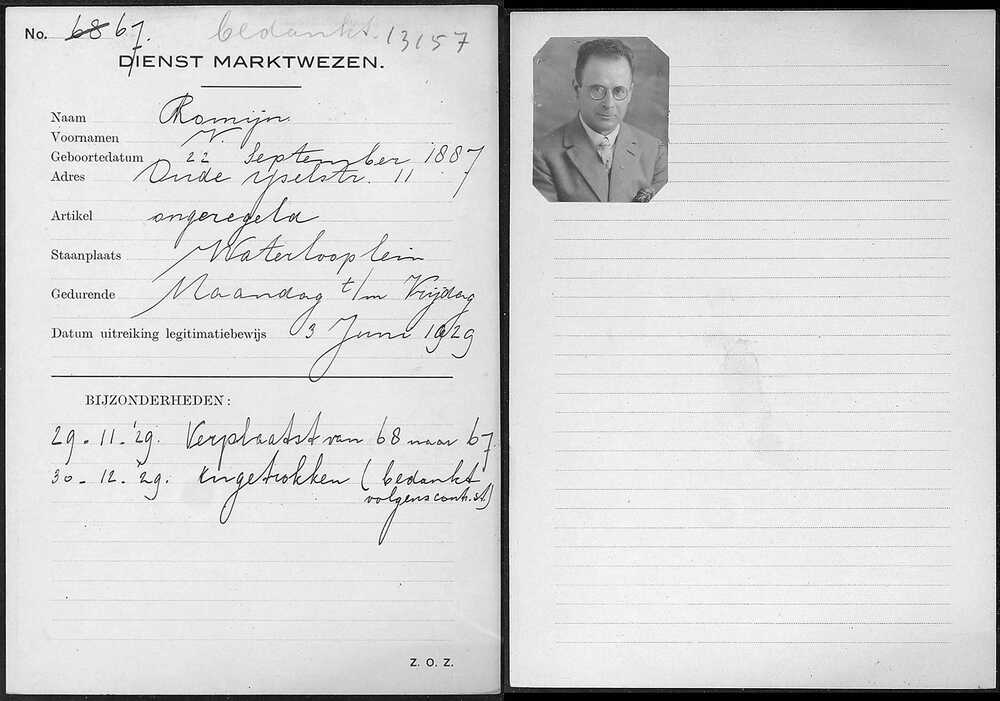 No. 68 67.
bedankt. 13157
DIENST MARKTWEZEN.
Naam Romijn
Voornamen N.
Geboortedatum 22 September 1887
Adres Oude ijselstr. 11
Artikel ongeregeld
Staanplaats Waterlooplein
Gedurende Maandag t/m Vrijdag
Datum uitreiking legitimatiebewijs 3 Juni 1929
BIJZONDERHEDEN:
29-11-'29. Verplaatst van 68 naar 67
30-12-'29. Ingetrokken (bedankt
volgens contr. st)
Z. O. Z.